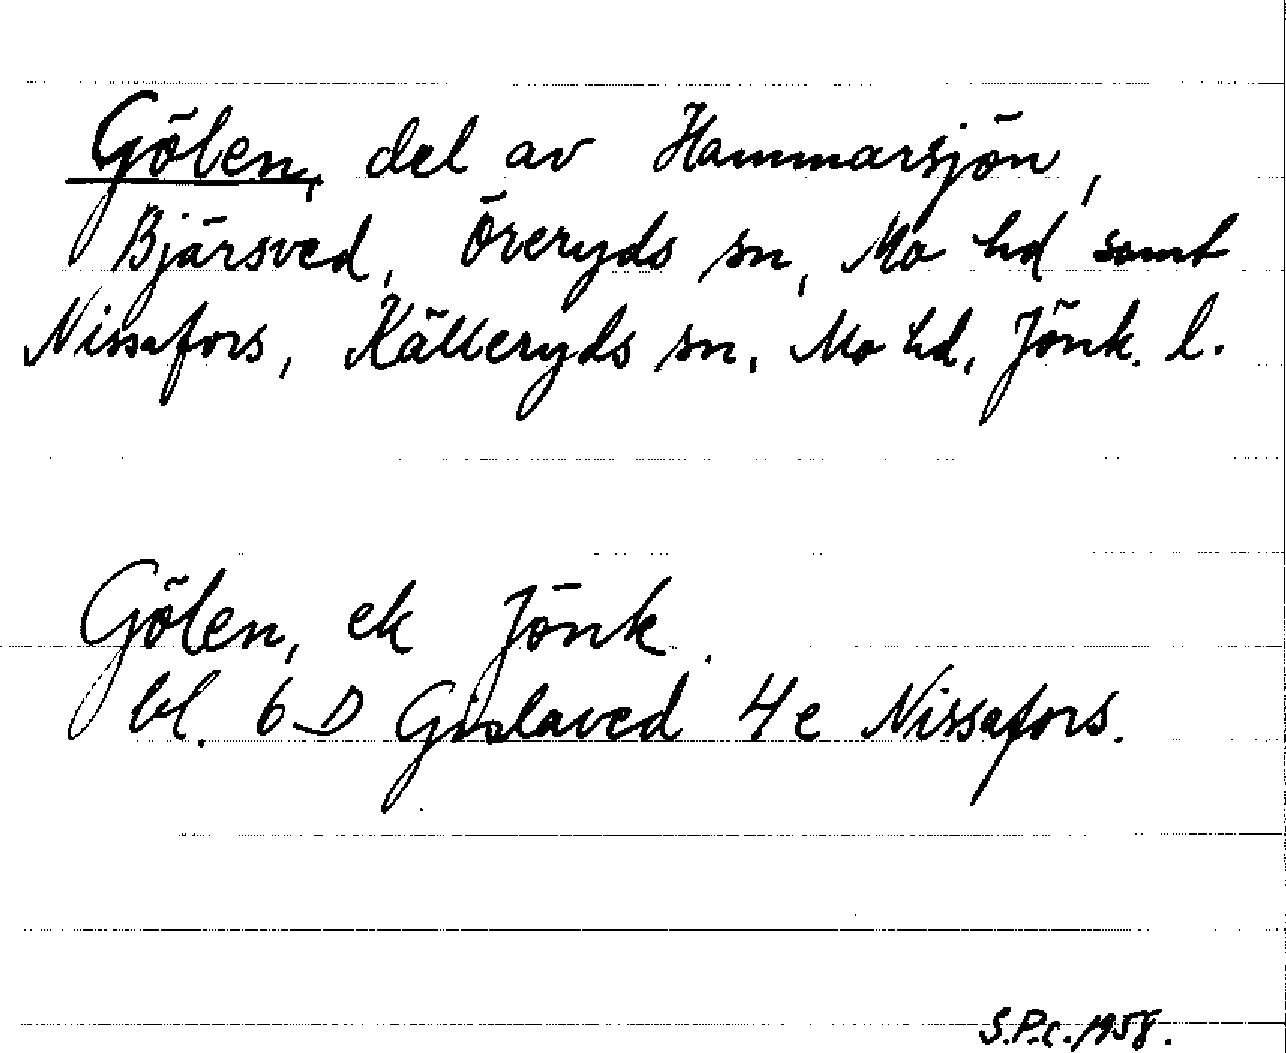 Gölen, del av Hammarsjön,
Bjärsved, Öreryds sn, Mo hd samt
Nissafors, Källeryds sn, Mo hd, Jönk. l.
Gölen, ek Jönk.
bl. 6D Gislaved 4e Nissafors.
S.P.c. 1958.